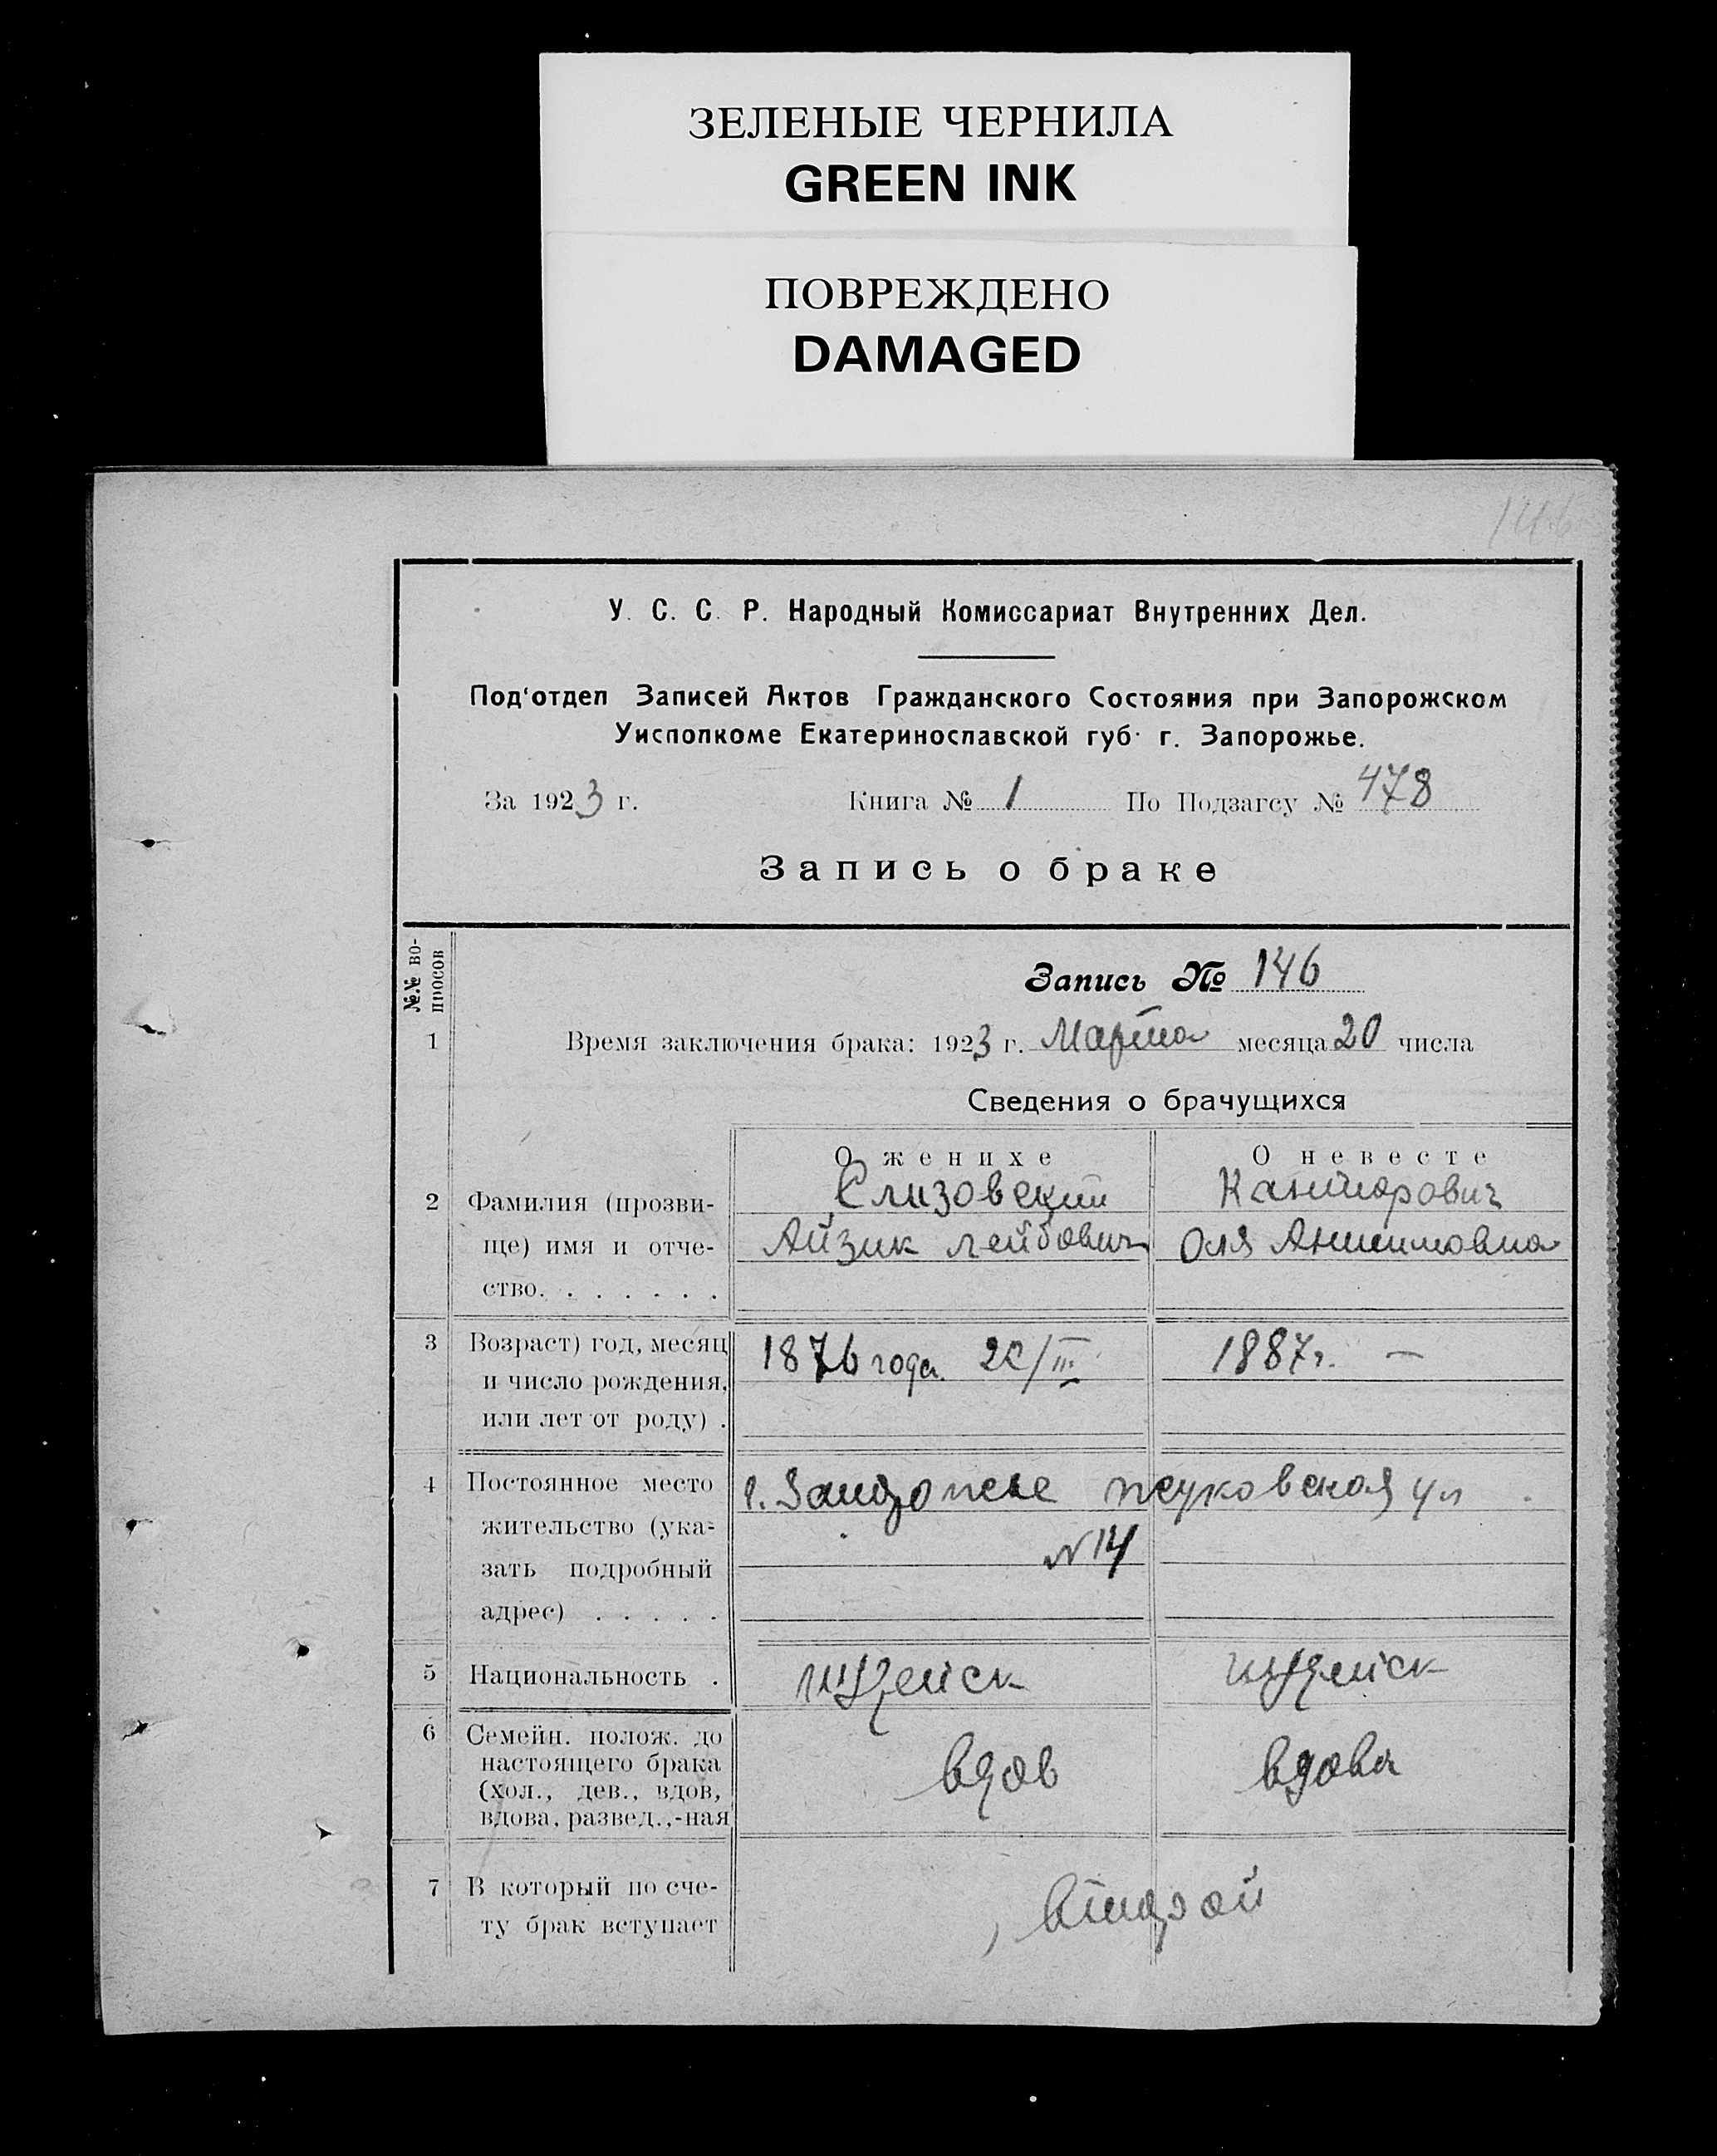 ЗЕЛЕНЫЕ ЧЕРНИЛА
GREEN INK
ПОВРЕЖДЕНО
DAMAGED
146
У. С. С. Р. Народный Комиссариат Внутренних Дел.
Под'отдел Записей Актов Гражданского Состояния при Запорожском
Уисполкоме Екатеринославской губ. г. Запорожье.
За 1923 г. Книга № 1 По Подзагсу № 478
Запись о браке
№№ во-
просов
Запись № 146
1 Время заключения брака: 1923 г. Марта месяца 20 числа
Сведения о брачущихся
О женихе О невесте
2 Фамилия (прозви-
ще) имя и отче-
ство. . . . . . .
Елизовский
Айзик Лейбович
Оля
3 Возраст) год, месяц
и число рождения,
или лет от роду) .
1876 года 20/III
1887 г. —
4 Постоянное место
жительство (ука-
зать подробный
адрес) . . . . .
г. Запорожье Жуковская ул
№ 14
5 Национальность .
иудейск
иудейск
6 Семейн. полож. до
настоящего брака
(хол., дев., вдов,
вдова, развед.,-ная
вдов
вдова
7 В который по сче-
ту брак вступает
второй